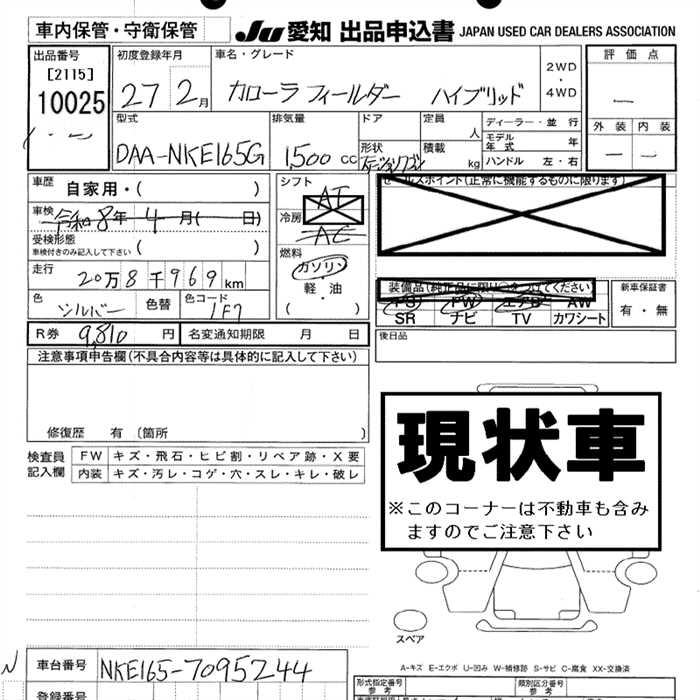 車内保管・守衛保管
JU 愛知 出品申込書 JAPAN USED CAR DEALERS ASSOCIATION
出品番号
[2115]
10025
初度登録年月
27 2月
車名・グレード
カローラフィールダー ハイブリッド
2WD
・
4WD
評価点
外装 内装
型式
DAA-NKE165G
排気量
1,500 CC
ドア
形状
ステーションワゴン
定員
人
積載
kg
ディーラー・並行
モデル年式 年
ハンドル 左・右
車歴
自家用・( )
車検
令和8年 4月( 日)
受検形態
車検付きのみ記入して下さい ( )
走行
20万8千969km
色
シルバー 色替
色コード
1F7
シフト
AT
冷房
AC
燃料
ガソリン
・
軽・油
( )
セールスポイント(正常に機能するものに限ります)
装備品(純正品に限り○をつけてください)
PS PW エアB AW
SR ナビ TV カワシート
新車保証書
有・無
R券 9,810円 名変通知期限 月 日
後日品
注意事項申告欄(不具合内容等は具体的に記入して下さい)
修復歴 有 〔箇所 〕
検査員
記入欄
FW キズ・飛石・ヒビ割・リペア跡・X要
内装 キズ・汚レ・コゲ・穴・スレ・キレ・破レ
現状車
※このコーナーは不動車も含み
ますのでご注意下さい
スペア
A-キズ E-エクボ U-凹み W-補修跡 S-サビ C-腐食 XX-交換済
車台番号 NKE165-7095244
登録番号
形式指定番号
参考
類別区分番号
参考